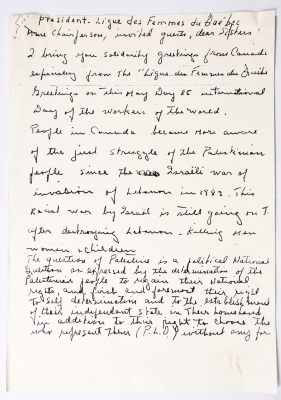 president. Ligue des Femmes du Quebec
Mme Chairperson, invited guests, dear Sisters
I bring you solidarity greetings from Canada
especially from The "Ligue des Femmes du Québec
Greetings on this May Day 86 international
Day of the workers of the world.
People in Canada became more aware
of the just struggle of the Palestinian
people since the Israeli war of
invasion of Lebanon in 1982. This
Racist war by Israel is still going on
after destroying Lebanon - killing men
women & children
The question of Palestine is a political National
Question as expressed by the determination of the
Palestinian people to regain their National
rights, and first and foremost their right
to self determination and to the establishment
of their independant State in Their homeland
in addition to their right to choose the
who represent them (P.L.O) without any for